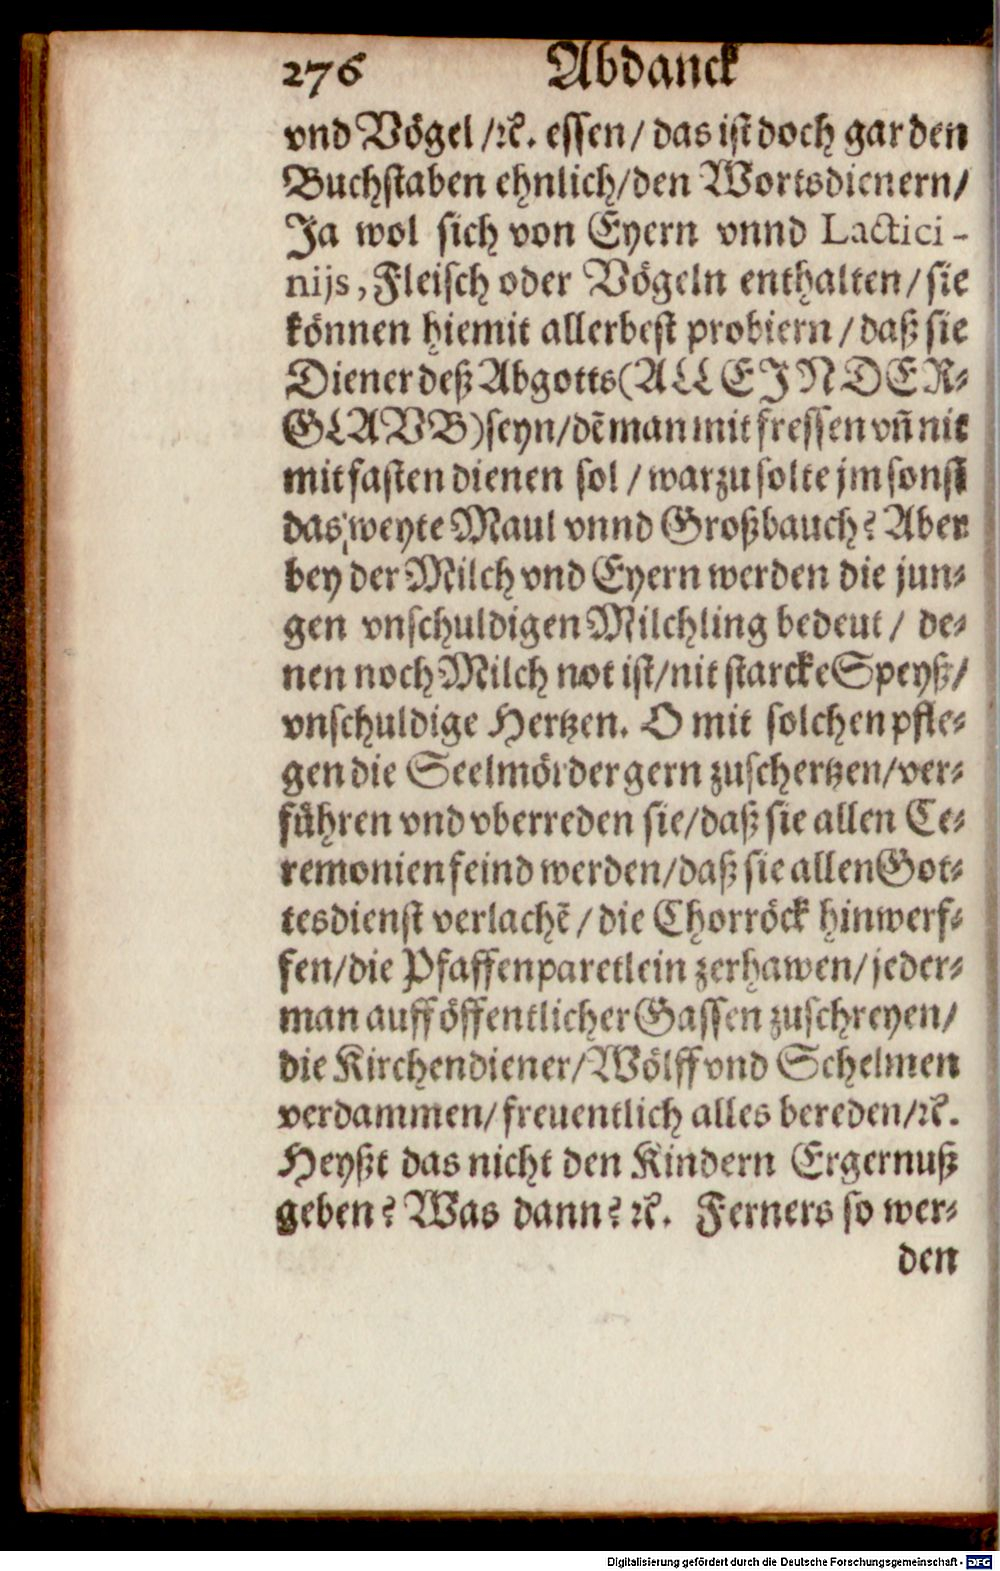 276 Abdanck
vnd Vögel /ꝛc. essen/ das ist doch gar den
Buchstaben ehnlich/den Wortsdienern/
Ja wol sich von Eyern vnnd Lactici-
nijs, Fleisch oder Vögeln enthalten/ sie
können hiemit allerbest probiern / daß sie
Diener deß Abgotts (ALLEINDER-
GLAVB) seyn/dẽ man mit fressen vñ nit
mit fasten dienen sol / warzu solte jm sonst
das weyte Maul vnnd Großbauch? Aber
bey der Milch vnd Eyern werden die jun-
gen vnschuldigen Milchling bedeut / de-
nen noch Milch not ist/nit starcke Speyß/
vnschuldige Hertzen. O mit solchen pfle-
gen die Seelmörder gern zuschertzen/ver-
führen vnd vberreden sie/daß sie allen Ce-
remonien feind werden/daß sie allen Got-
tesdienst verlachẽ / die Chorröck hinwerf-
fen/die Pfaffenparetlein zerhawen/jeder-
man auff öffentlicher Gassen zuschreyen/
die Kirchendiener/Wölff vnd Schelmen
verdammen/ freuentlich alles bereden/ꝛc.
Heyßt das nicht den Kindern Ergernuß
geben? Was dann? ꝛc. Ferners so wer-
den
Digitalisierung gefördert durch die Deutsche Forschungsgemeinschaft - DFG